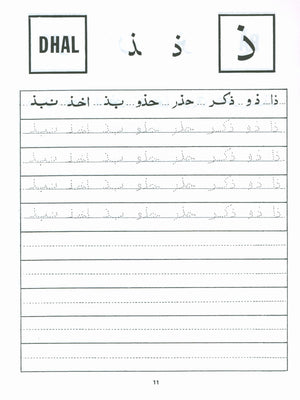 ذ ذ ـذ DHAL
ذا ذو ذكر حذر حذو بذ اخذ نبذ
ذا ذو ذكر حذر حذو بذ اخذ نبذ
ذا ذو ذكر حذر حذو بذ اخذ نبذ
ذا ذو ذكر حذر حذو بذ اخذ نبذ
ذا ذو ذكر حذر حذو بذ اخذ نبذ
11